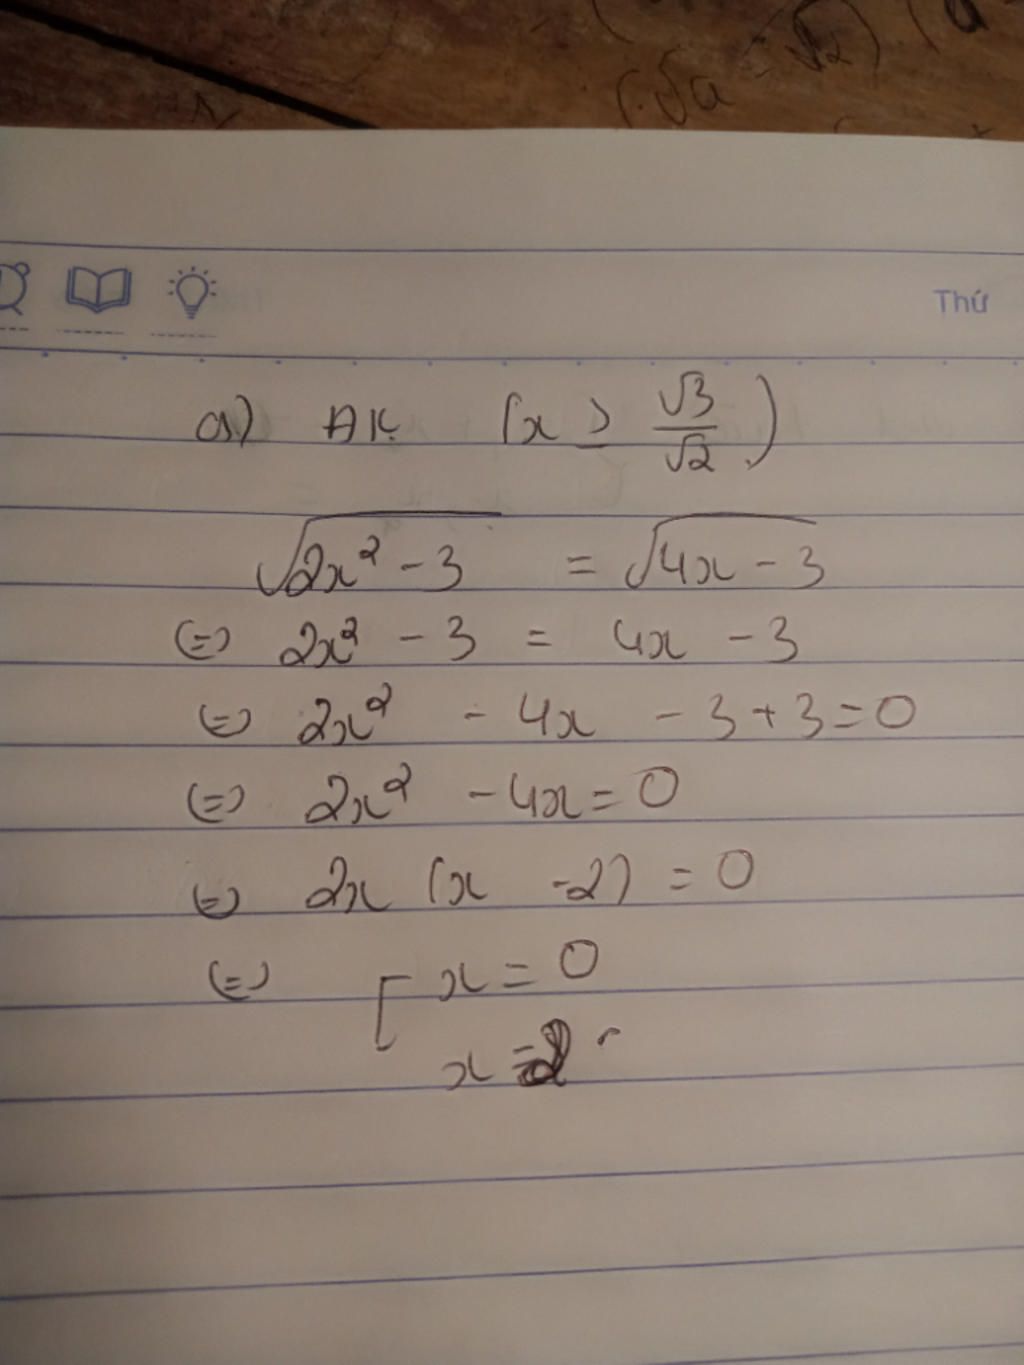 (√a - √2) (a
Thứ
a) ĐK (x ≥ √3/√2)
√(2x² - 3) = √(4x - 3)
(=) 2x² - 3 = 4x - 3
(=) 2x² - 4x - 3 + 3 = 0
(=) 2x² - 4x = 0
(=) 2x (x - 2) = 0
(=) [ x = 0
x = 2